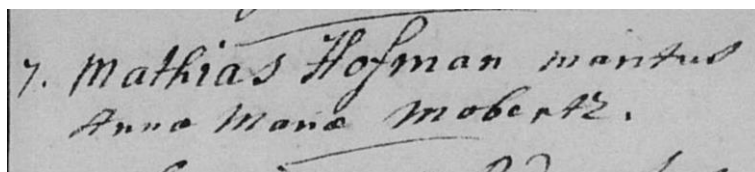 7. Mathias Hofman maritus
Annæ Mariæ Mobertz.